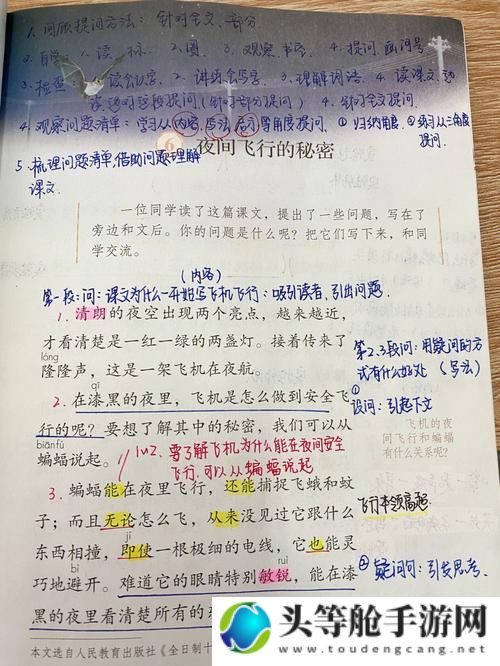 1. 回顾提问方法：针对全文、部分
2. 自学：1. 读一标 2. 圈 3. 观察书写 4. 提问，画问号
3. 检查 读会认字 2. 讲练会写字 3. 理解词语 4. 读课文
逐段提问（针对部分提问） 4. 针对全文提问
4. 观察问题清单：学习从内容、写法、启示等角度提问. ①归纳角度 ②练习从三角度
提问.
6 夜间飞行的秘密
5. 梳理问题清单，借助问题理解
课文.
一位同学读了这篇课文，提出了一些问题，写在了
旁边和文后。你的问题是什么呢？把它们写下来，和同
学交流。
（内容）
第一段：问：课文为什么一开始写飞机飞行：吸引读者，引出问题.
1. 清朗的夜空出现两个亮点，越来越近，
才看清楚是一红一绿的两盏灯。接着传来了
lóng
隆隆声，这是一架飞机在夜航。
第2.3段问：用疑问的方
式有什么好处（写法）
qī
2. 在漆黑的夜里，飞机是怎么做到安全飞
行的呢？要想了解其中的秘密，我们可以从
①
设问：引起下文
biānfú
蝙蝠说起。
1v2. 要了解飞机为什么能在夜间安全
飞行，可以从蝙蝠说起
飞机的夜
间飞行和蝙蝠
有什么关系呢？
3. 蝙蝠能在夜里飞行，还能捕捉飞蛾和蚊
子；而且无论怎么飞，从来没见过它跟什么
飞行本领高超
jí
东西相撞，即使一根极细的电线，它也能灵
bì ruì
巧地避开。难道它的眼睛特别敏锐，能在漆
②疑问句：引发思考.
黑的夜里看清楚所有的
本文选自人民教育出版社《全日制十
头等舱手游网
www.toudengcang.net